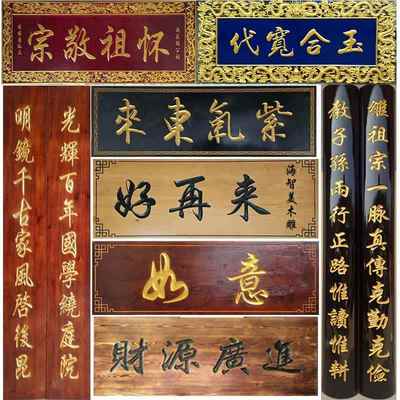 怀祖敬宗
玉合寬代
光輝百年國學繞庭院
明鏡千古家風啓後昆
紫氣東來
好再来
海智美木雕
如意
財源廣進
繼祖宗一脈真傳克勤克儉
教子孫兩行正路惟讀惟耕